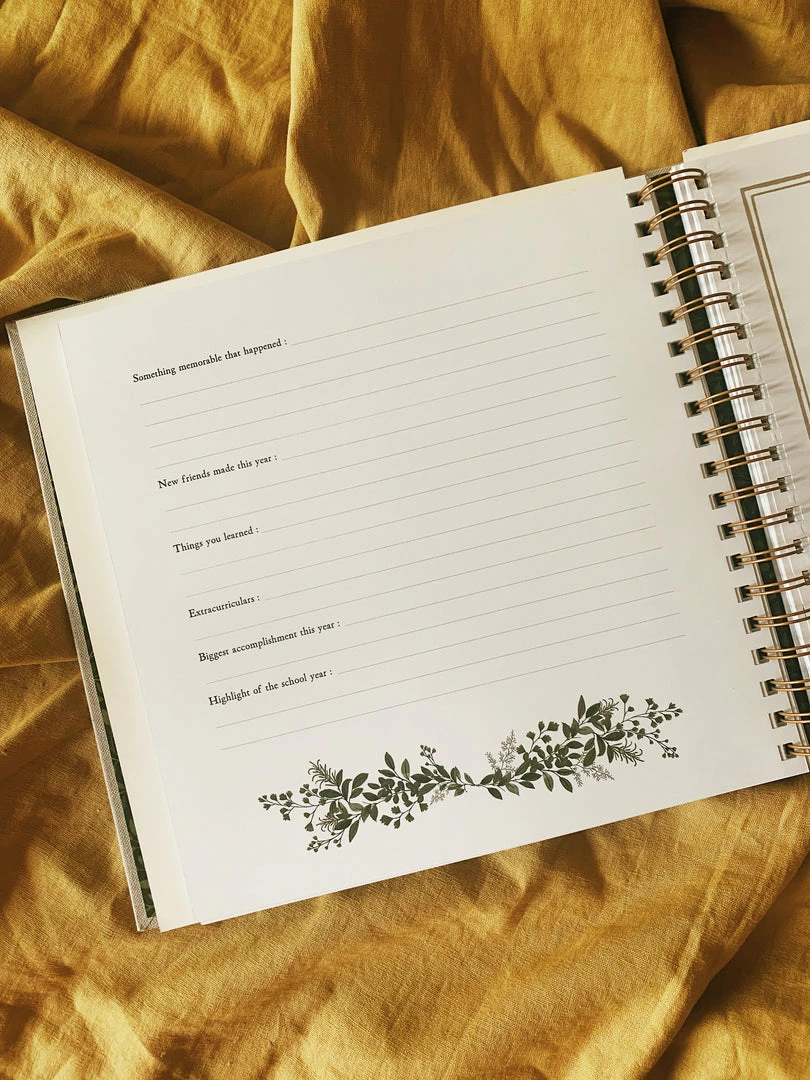 Something memorable that happened :
New friends made this year :
Things you learned :
Extracurriculars :
Biggest accomplishment this year :
Highlight of the school year :